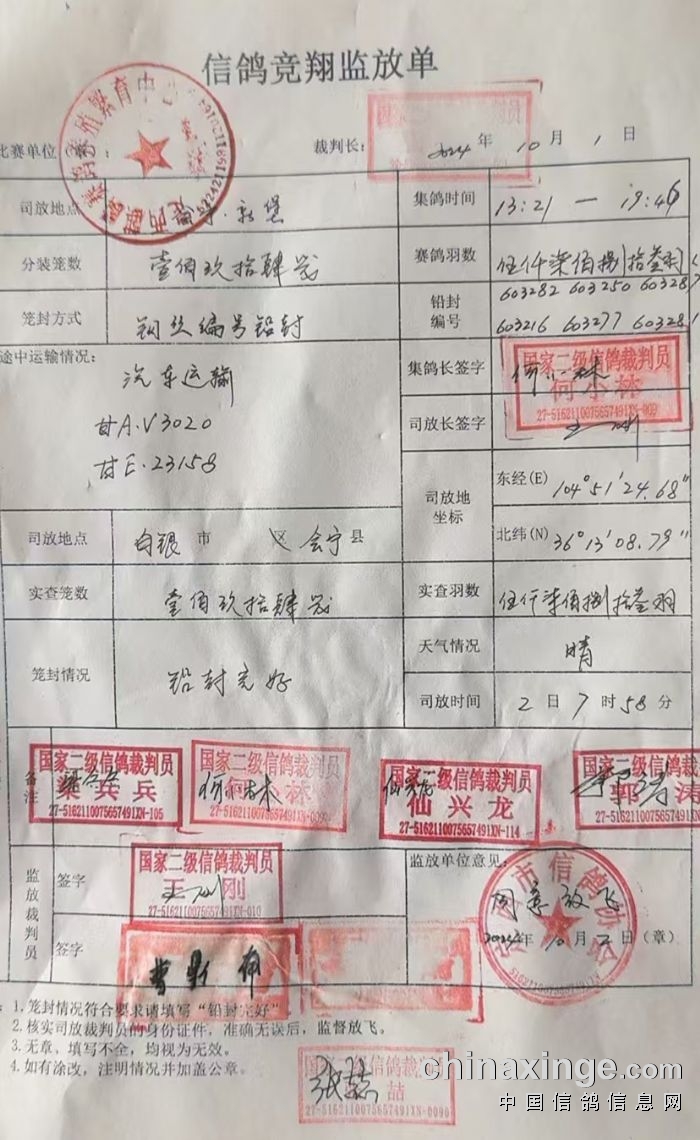 信鸽竞翔监放单
比赛单位(
裁判长:
2024年10月1日
司放地点
新堡
集鸽时间
13:21 — 19:46
分装笼数
壹佰玖拾肆笼
赛鸽羽数
伍仟柒佰捌拾叁羽
笼封方式
钢丝编号铅封
铅封编号
603282 603250 603287
603216 603277 603281
途中运输情况:
汽车运输
甘A·V3020
甘E·23158
集鸽长签字
何小林
国家二级信鸽裁判员
何小林
27-5162110075657491XN-009
司放长签字
王刚
司放地坐标
东经(E) 104°51′24.68″
北纬(N) 36°13′08.79″
司放地点
白银市 区 会宁县
实查笼数
壹佰玖拾肆笼
实查羽数
伍仟柒佰捌拾叁羽
笼封情况
铅封完好
天气情况
晴
司放时间
2日7时58分
备注
国家二级信鸽裁判员
梁兵兵
27-5162110075657491XN-105
国家二级信鸽裁判员
何小林
国家二级信鸽裁判员
仙兴龙
27-5162110075657491XN-114
国家二级信鸽裁判员
郭涛
27-5162110075657491XN
监放裁判员
签字
国家二级信鸽裁判员
王刚
27-5162110075657491XN-010
签字
监放单位意见:
同意放飞
2024年10月2日(章)
市信鸽协会
1.笼封情况符合要求请填写“铅封完好”。
2.核实司放裁判员的身份证件,准确无误后,监督放飞。
3.无章、填写不全,均视为无效。
4.如有涂改,注明情况并加盖公章。
国家二级信鸽裁判员
张喆
27-5162110075657491XN-0090
chinaxinge.com
中国信鸽信息网